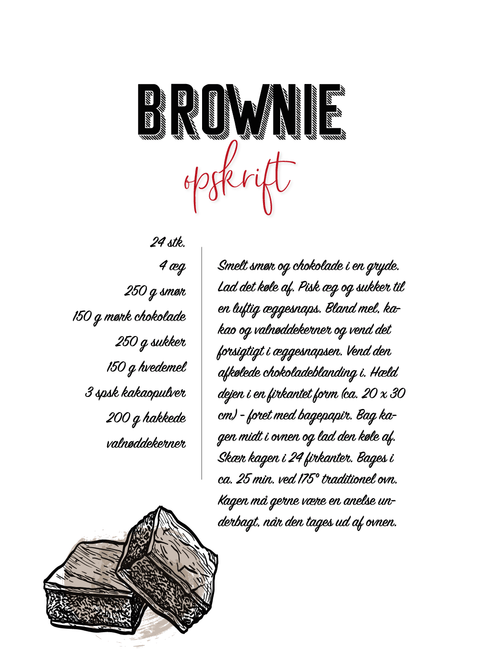 BROWNIE
opskrift
24 stk.
4 æg
250 g smør
150 g mørk chokolade
250 g sukker
150 g hvedemel
3 spsk kakaopulver
200 g hakkede
valnøddekerner
Smelt smør og chokolade i en gryde.
Lad det køle af. Pisk æg og sukker til
en luftig æggesnaps. Bland mel, ka-
kao og valnøddekerner og vend det
forsigtigt i æggesnapsen. Vend den
afkølede chokoladeblanding i. Hæld
dejen i en firkantet form (ca. 20 x 30
cm) - foret med bagepapir. Bag ka-
gen midt i ovnen og lad den køle af.
Skær kagen i 24 firkanter. Bages i
ca. 25 min. ved 175° traditionel ovn.
Kagen må gerne være en anelse un-
derbagt, når den tages ud af ovnen.